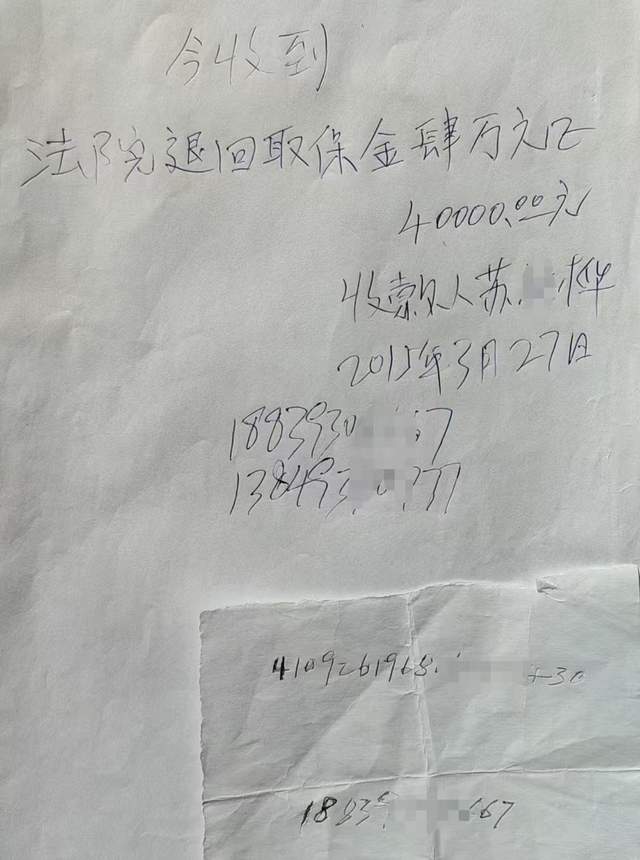 今收到
法院退回取保金肆万元正
40000.00元
收款人苏 桦
2015年3月27日
1883930 7
138493
4109261968
18839 67